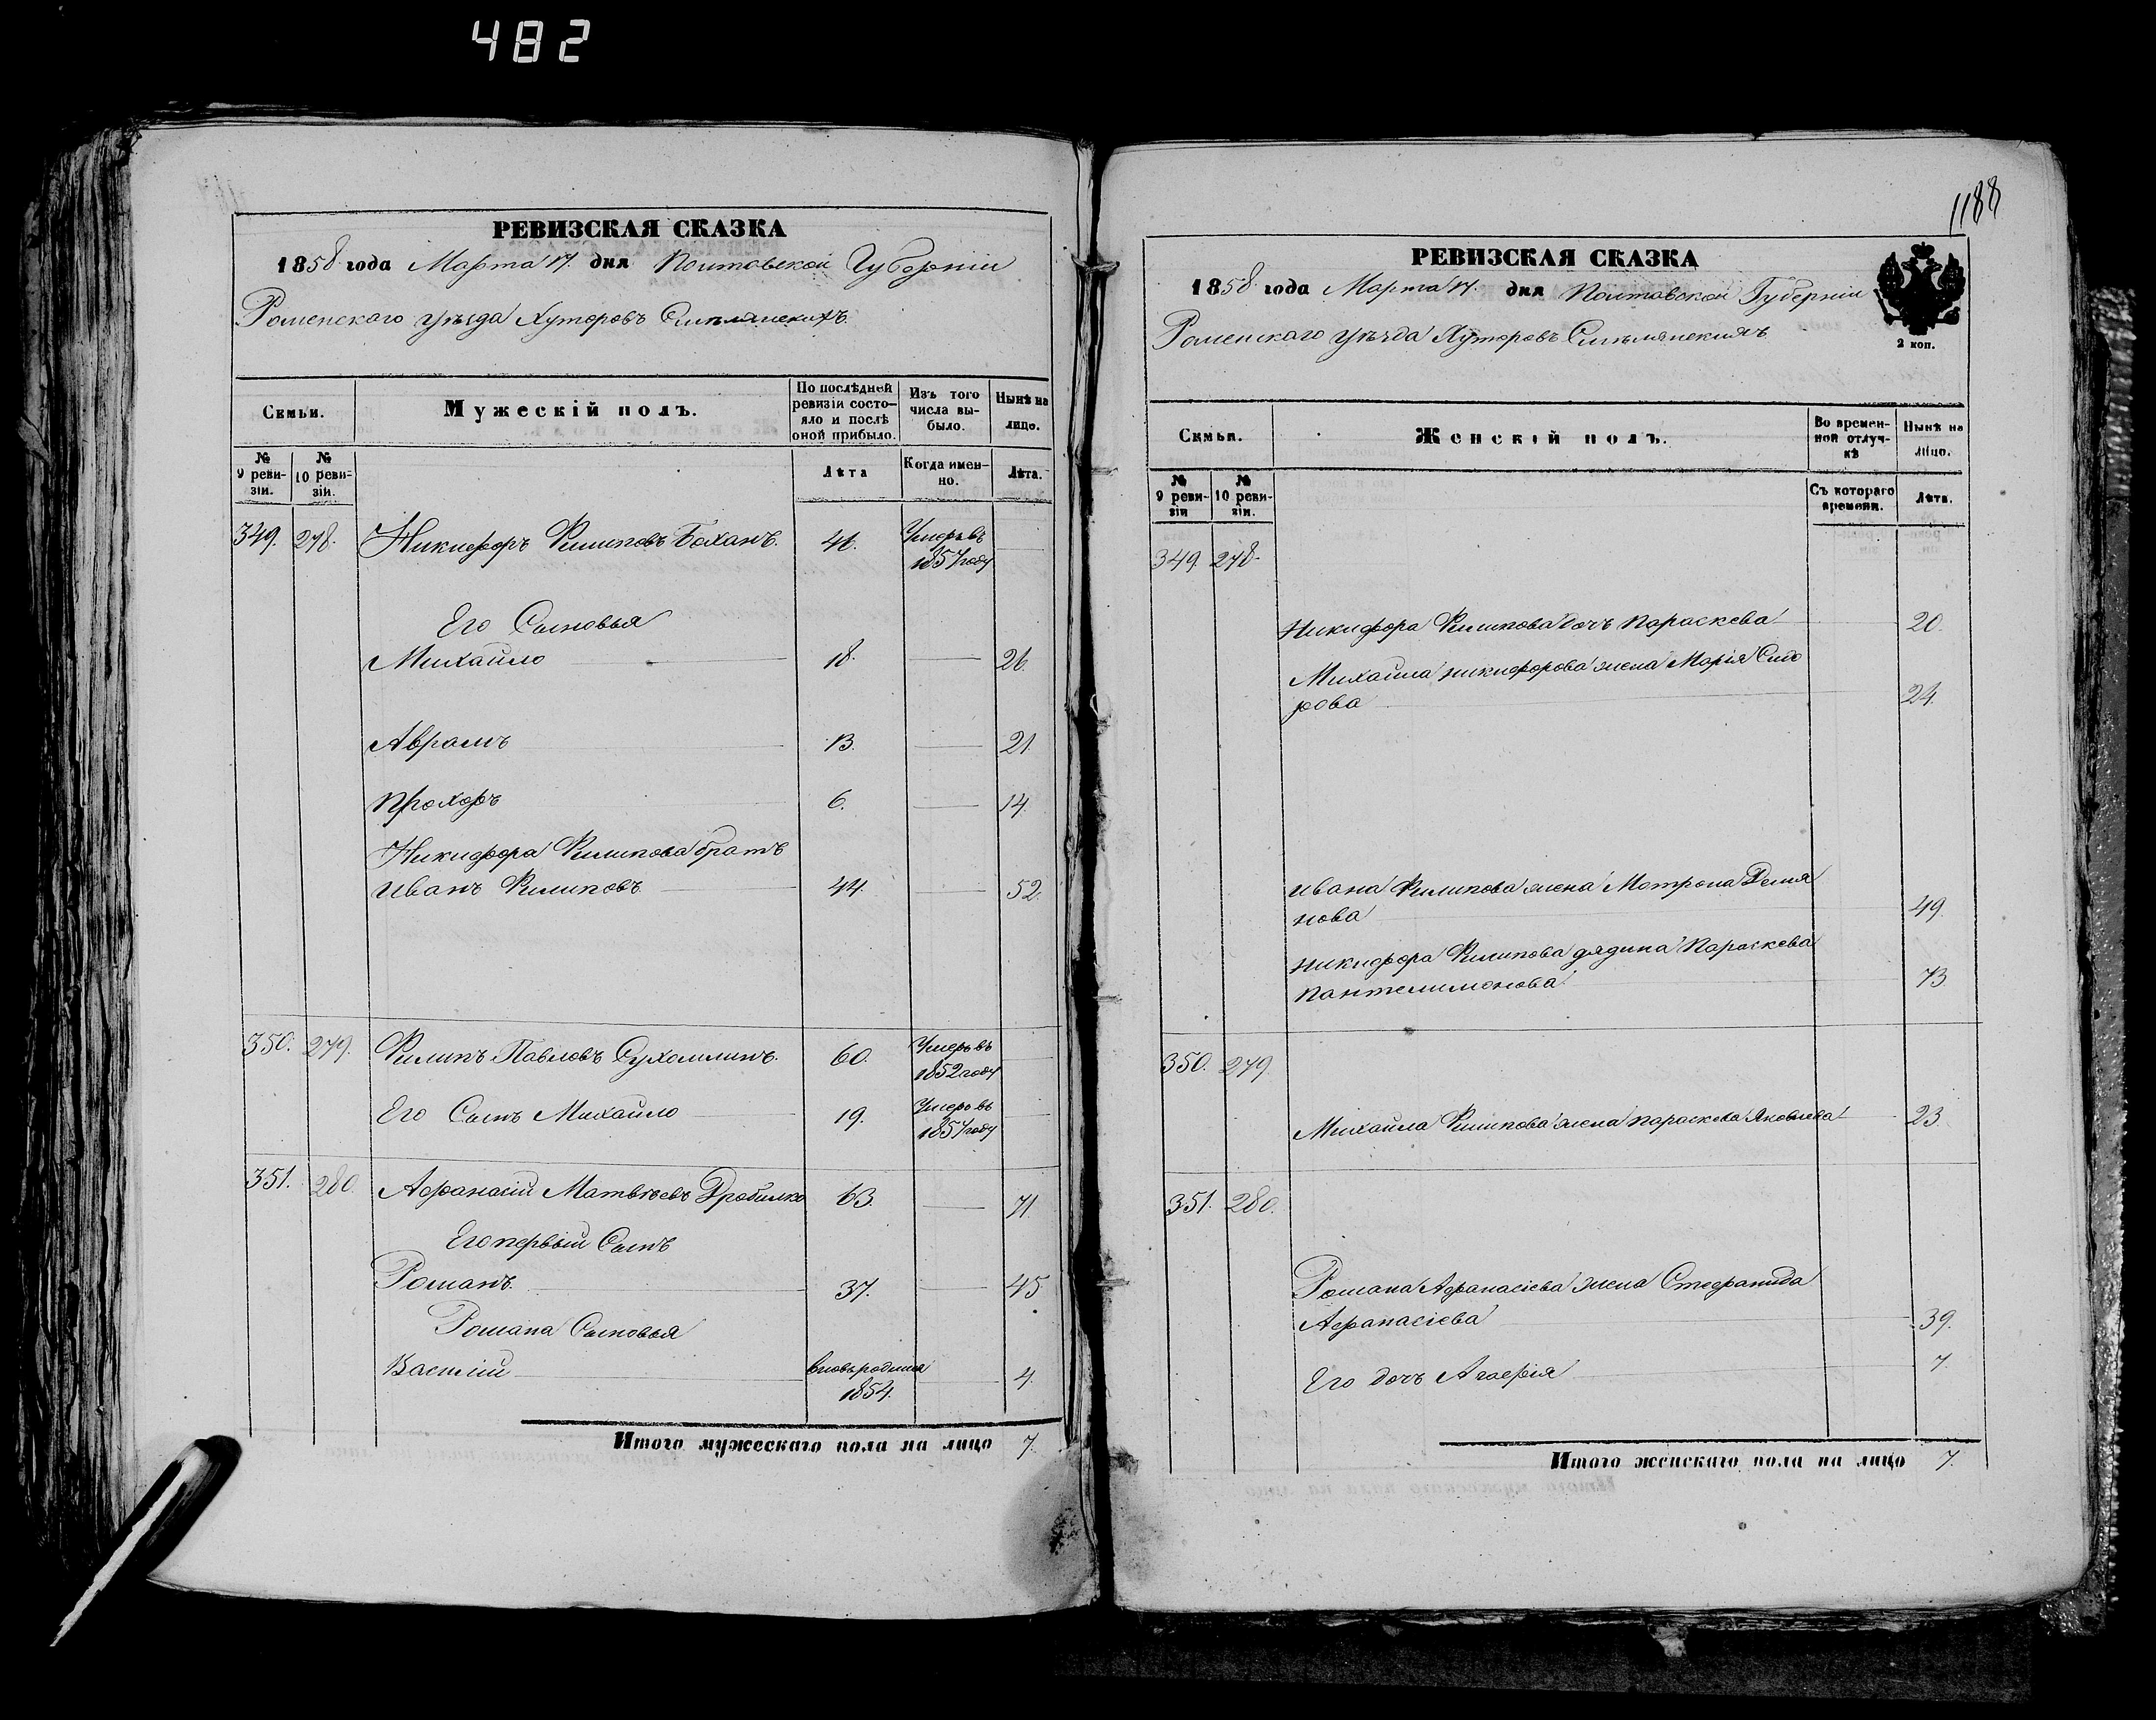 482
РЕВИЗСКАЯ СКАЗКА
1858 года Марта 17. дня Полтавской Губерніи
Роменского уѣзда Хуторовъ
Семьи.
Мужескій полъ.
По послѣдней ревизіи состо-
яло и послѣ
оной прибыло.
Изъ того
числа вы-
было.
Нынѣ на
лицо.
№
9 реви-
зіи.
№
10 реви-
зіи.
Лѣта
Когда имен-
но.
Лѣта.
349. 278. Никифоръ Филиповъ Боханъ. 41. Умеръ въ
1857 году
Его Сыновья
Михайло 18. 26.
Аврамъ 13. 21.
Прохоръ 6. 14.
Никифора Филипова братъ
Иванъ Филиповъ 44. 52.
350. 279. Филипъ Павловъ Сухомлинъ. 60. Умеръ въ
1852 году
Его Сынъ Михайло 19. Умеръ въ
1857 году
351. 280. Афанасій Матвѣевъ Дробилко 63. 71.
Его первый Сынъ
Романъ. 37. 45
Романа Сыновья
Василій вновьродился
1854. 4.
Итого мужескаго пола на лицо 7.
1188
РЕВИЗСКАЯ СКАЗКА
1858 года Марта 17. дня Полтавской Губерніи
Роменского уѣзда Хуторовъ
2 коп.
Семьи.
Женскій полъ.
Во времен-
ной отлуч-
кѣ
Нынѣ на
лицо.
№
9 реви-
зіи
№
10 реви-
зіи.
Съ котораго
времени.
Лѣта.
349. 278.
Никифора Филипова дочь Параскева 20.
Михайла Никифорова жена Марія Сидо
рова 24.
Ивана Филипова жена Мотрона Демя
нова 49.
Никифора Филипова дядина Параскева
Пантелимонова 73
350. 279.
Михайла Филипова жена Параскева Яковлева 23
351. 280.
Романа Афанасіева жена Стефанида
Афанасіева 39.
Его дочь 7.
Итого женскаго пола на лицо 7.